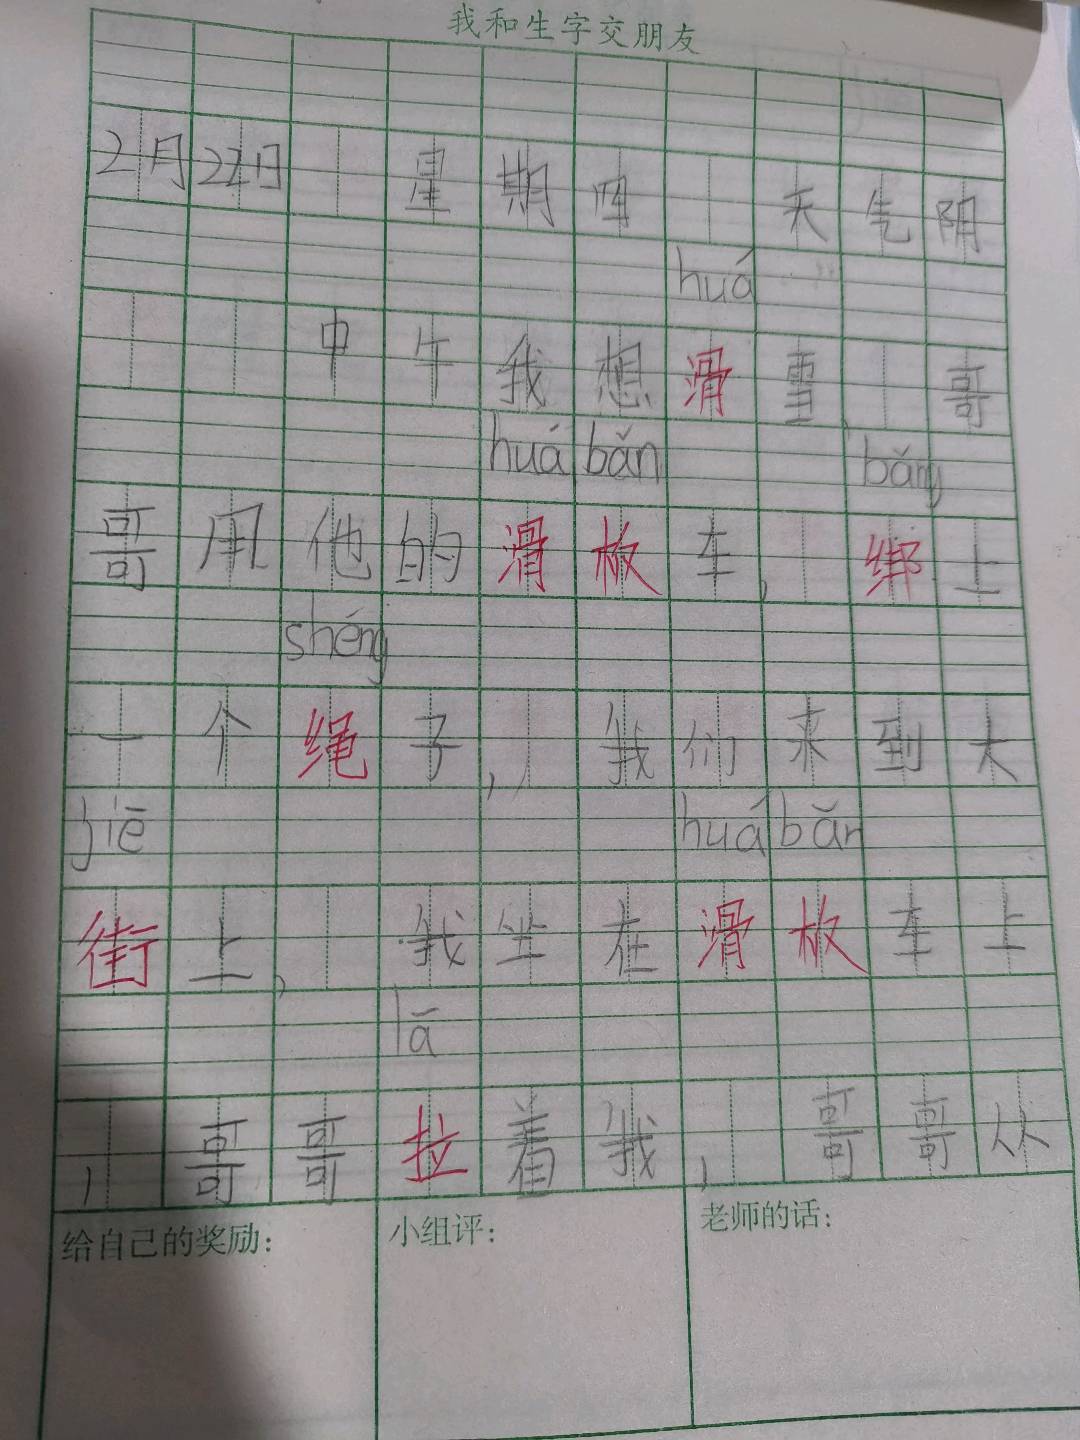 我和生字交朋友
2月22日 星期四 天气阴
huá
中午我想滑雪,哥
huá bǎn bǎng
哥用他的滑板车,绑上
shéng
一个绳子,我们来到大
jiē huá bǎn
街上,我坐在滑板车上
lā
,哥哥拉着我,哥哥从
给自己的奖励: 小组评: 老师的话: